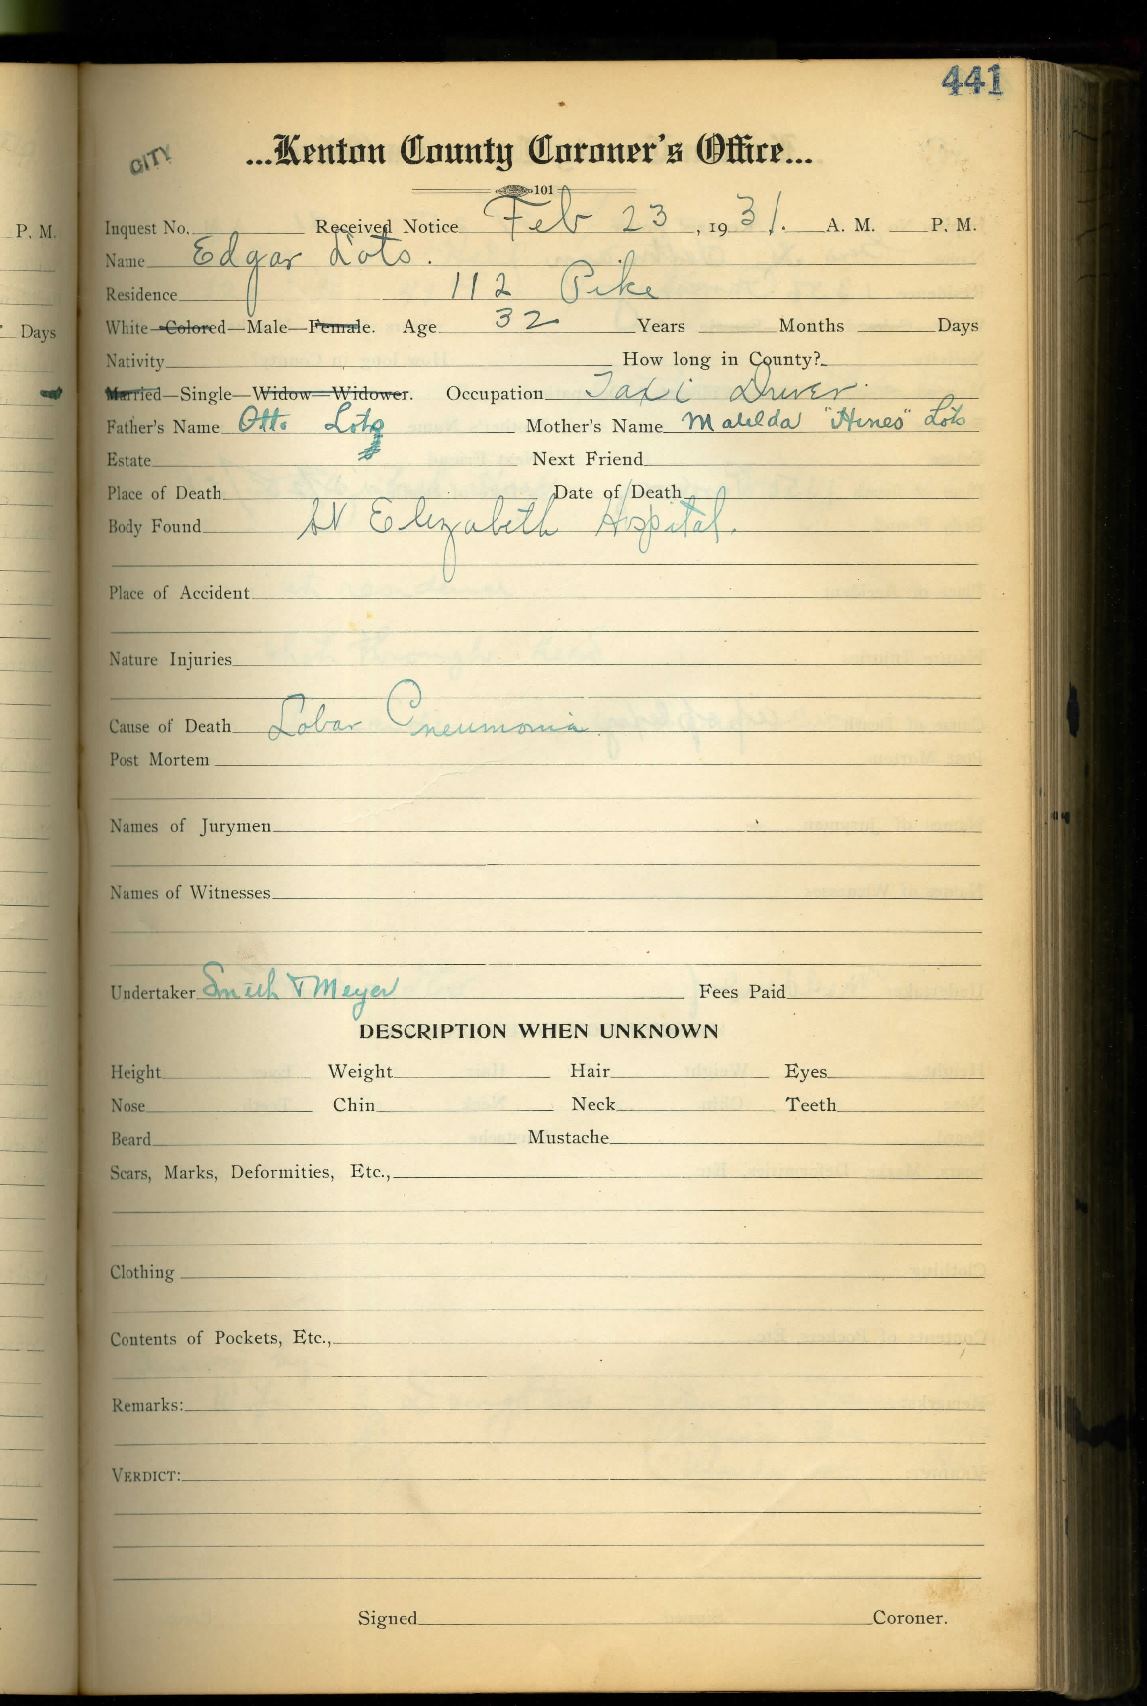 441
CITY
...Kenton County Coroner's Office...
101
P. M.
Inquest No. Received Notice Feb 23, 1931. A. M. P. M.
Name Edgar Lots.
Residence 112 Pike
Days
White—Colored—Male—Female. Age 32 Years Months Days
Nativity How long in County?
Married—Single—Widow—Widower. Occupation Taxi Driver.
Father's Name Otto Lotz Mother's Name Matilda "Hines" Lots
Estate Next Friend
Place of Death Date of Death
Body Found St Elizabeth Hospital.
Place of Accident
Nature Injuries
Cause of Death Lobar Pneumonia
Post Mortem
Names of Jurymen
Names of Witnesses
Undertaker Smith & Meyer Fees Paid
DESCRIPTION WHEN UNKNOWN
Height Weight Hair Eyes
Nose Chin Neck Teeth
Beard Mustache
Scars, Marks, Deformities, Etc.,
Clothing
Contents of Pockets, Etc.,
Remarks:
VERDICT:
Signed Coroner.